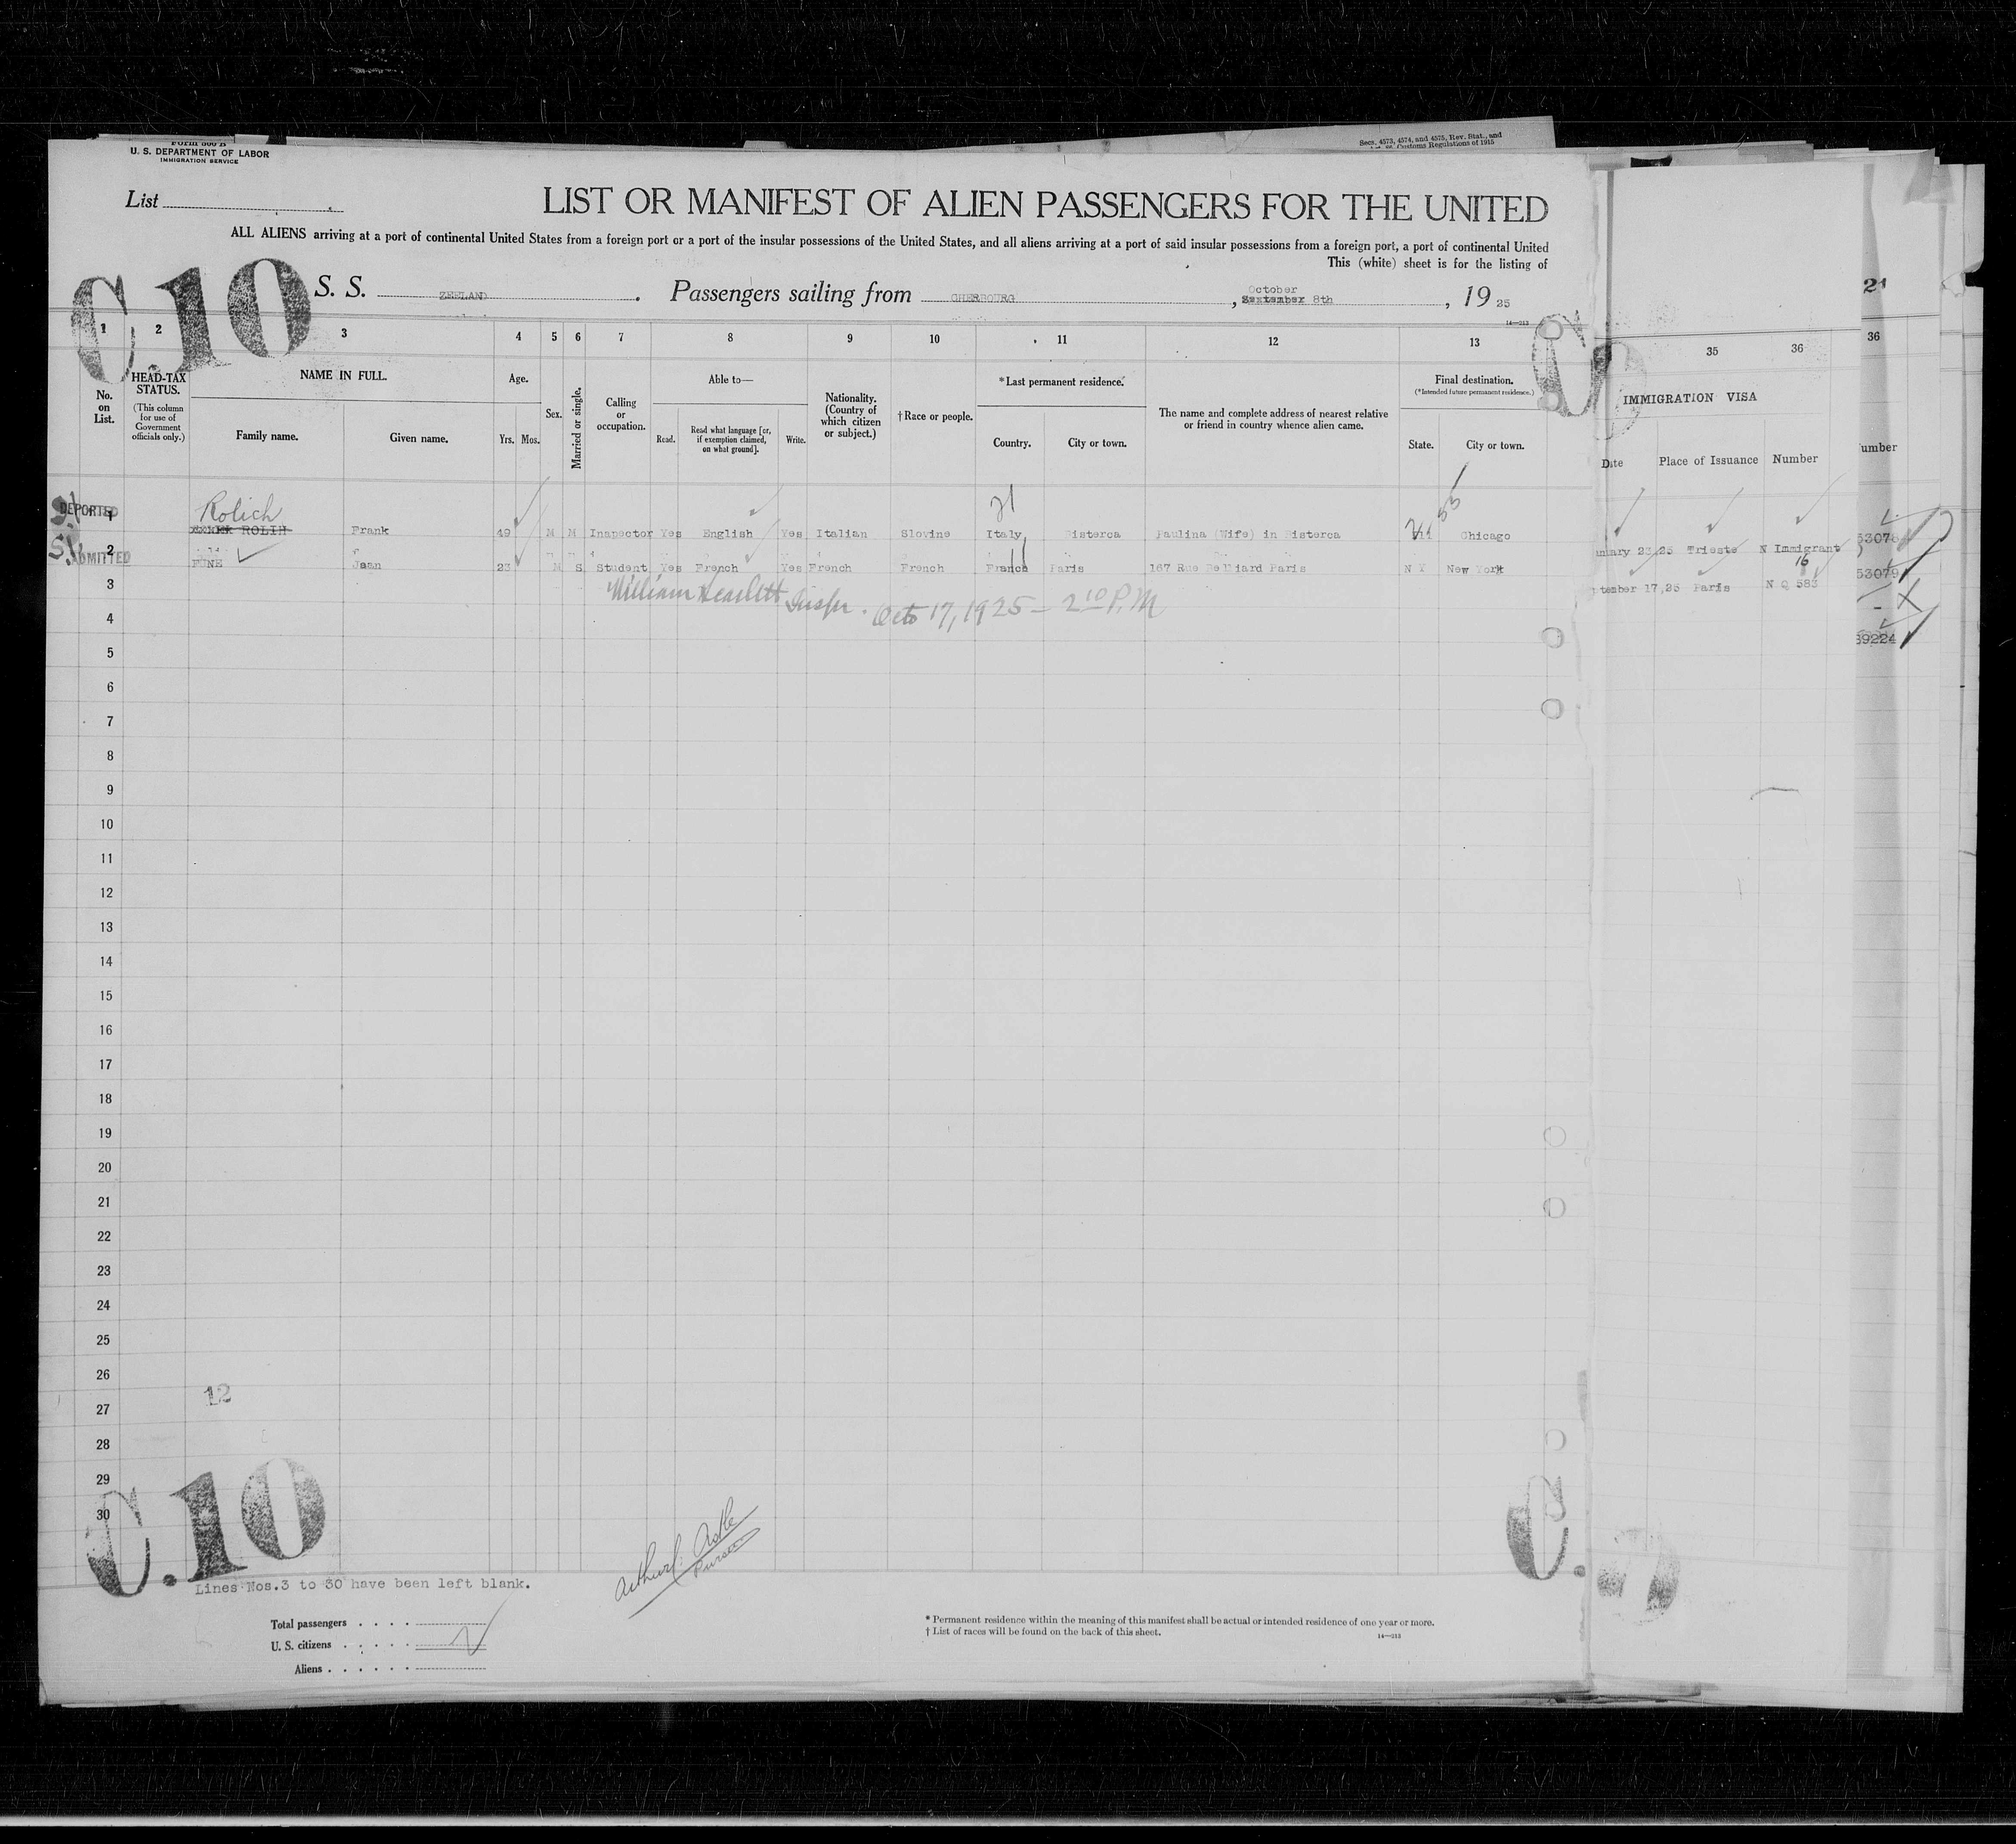 Form 500 B
U. S. DEPARTMENT OF LABOR
IMMIGRATION SERVICE
Secs. 4573, 4574, and 4575, Rev. Stat., and
Customs Regulations of 1915
List
LIST OR MANIFEST OF ALIEN PASSENGERS FOR THE UNITED
ALL ALIENS arriving at a port of continental United States from a foreign port or a port of the insular possessions of the United States, and all aliens arriving at a port of said insular possessions from a foreign port, a port of continental United
This (white) sheet is for the listing of
C.10
S. S. ZEELAND. Passengers sailing from CHERBOURG, October September 8th, 19 25
14—213
1 2 3 4 5 6 7 8 9 10 11 12 13 35 36 36
No. on List.
HEAD-TAX STATUS.
(This column for use of Government officials only.)
NAME IN FULL.
Family name. Given name.
Age.
Yrs. Mos.
Sex.
Married or single.
Calling or occupation.
Able to—
Read. Read what language [or, if exemption claimed, on what ground]. Write.
Nationality. (Country of which citizen or subject.)
† Race or people.
*Last permanent residence.
Country. City or town.
The name and complete address of nearest relative or friend in country whence alien came.
Final destination.
(*Intended future permanent residence.)
State. City or town.
IMMIGRATION VISA
Date Place of Issuance Number
umber
DEPORTED
Rolich
1 ROLIH Frank 49 M M Inspector Yes English Yes Italian Slovine Italy Bisterca Paulina (Wife) in Bisterca Ill Chicago
23,25 Trieste N Immigrant
ADMITTED
2 FUNE Jean 23 M S Student Yes French Yes French French France Paris 167 Rue Belliard Paris N Y New York
tember 17,25 Paris N Q 583
16
53079
39224
William Hewlett Inspr. Octo 17, 1925 — 2 10 P. M
3
4
5
6
7
8
9
10
11
12
13
14
15
16
17
18
19
20
21
22
23
24
25
26
27
28
29
30
12
C.10
Lines Nos.3 to 30 have been left blank.
Purser
Total passengers
U. S. citizens
Aliens
* Permanent residence within the meaning of this manifest shall be actual or intended residence of one year or more.
† List of races will be found on the back of this sheet.
14—213